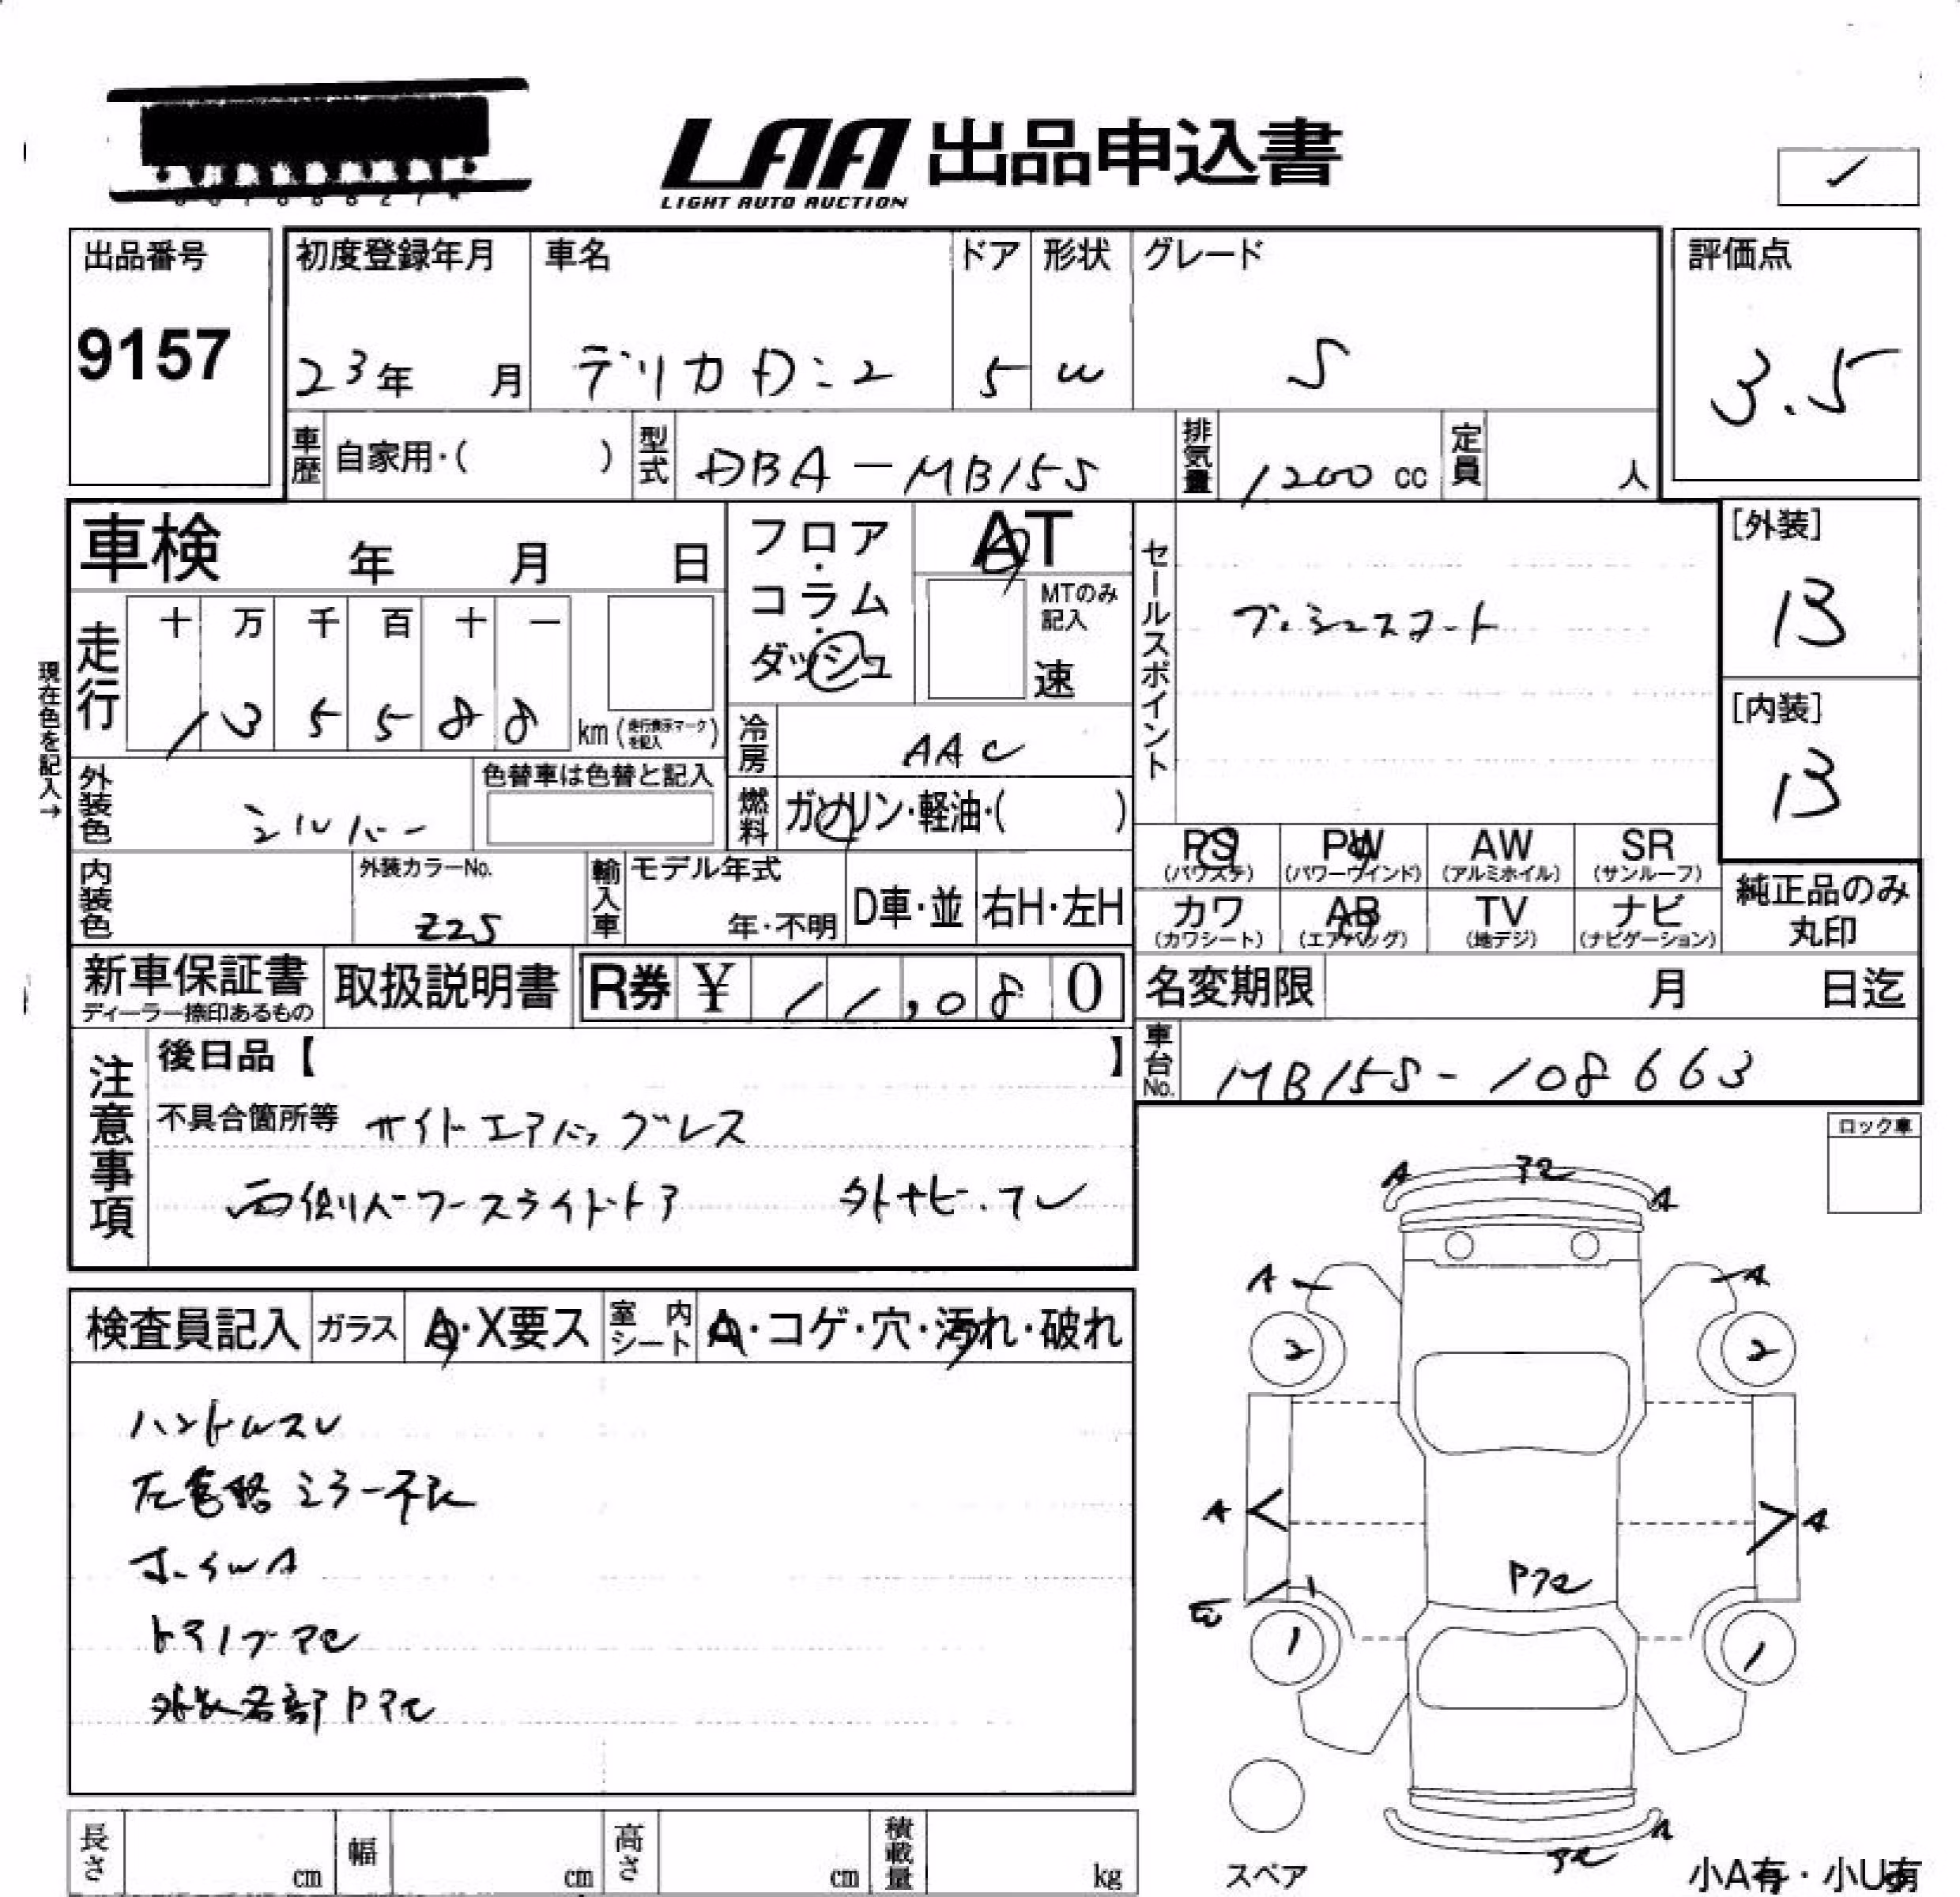 LAA 出品申込書
LIGHT AUTO AUCTION
出品番号
9157
初度登録年月
23年 月
車名
デリカD:2
ドア
5
形状
W
グレード
S
評価点
3.5
車歴 自家用・( )
型式 DBA-MB15S
排気量 1200 cc
定員 人
車検 年 月 日
フロア・コラム・ダッシュ
AT
MTのみ記入
速
セールスポイント
プッシュスタート
[外装]
B
[内装]
B
現在色を記入→
走行
十 万 千 百 十 一
1 3 5 5 8 8 km (走行表示マークを記入)
冷房 AAC
外装色 シルバー
色替車は色替と記入
燃料 ガソリン・軽油・( )
内装色
外装カラーNo.
Z2S
輸入車
モデル年式
年・不明
D車・並
右H・左H
PS (パワステ)
PW (パワーウインド)
AW (アルミホイル)
SR (サンルーフ)
カワ (カワシート)
AB (エアバッグ)
TV (地デジ)
ナビ (ナビゲーション)
純正品のみ丸印
新車保証書
ディーラー捺印あるもの
取扱説明書
R券 ¥ 11,080
名変期限 月 日迄
車台No. MB15S-108663
注意事項
後日品【 】
不具合箇所等 サイドエアバッグレス
両側パワースライドドア 外ナビ.TV
ロック車
検査員記入
ガラス A・X要ス
室内シート A・コゲ・穴・汚れ・破れ
ハンドルスレ
左電格ミラー不良
ホイルA
ドライブアセ
外装各部Pアセ
A アセ A
A A
2 2
A A
Pアセ
1
1 1
A
アセ
スペア
小A有・小U有
長さ cm
幅 cm
高さ cm
積載量 kg